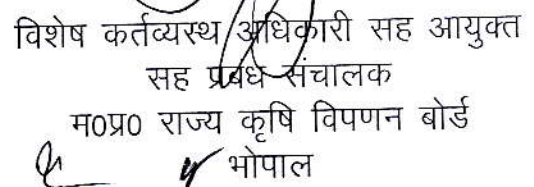 विशेष कर्तव्यस्थ अधिकारी सह आयुक्त
सह प्रबंध संचालक
म०प्र० राज्य कृषि विपणन बोर्ड
भोपाल